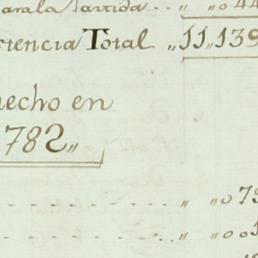 para la Partida . . „ „ 0 44
rtencia Total „ 11 „ 139
hecho en
782 „
. . . . . „ „ 0 79
. . . . . „ „ 0 0 1